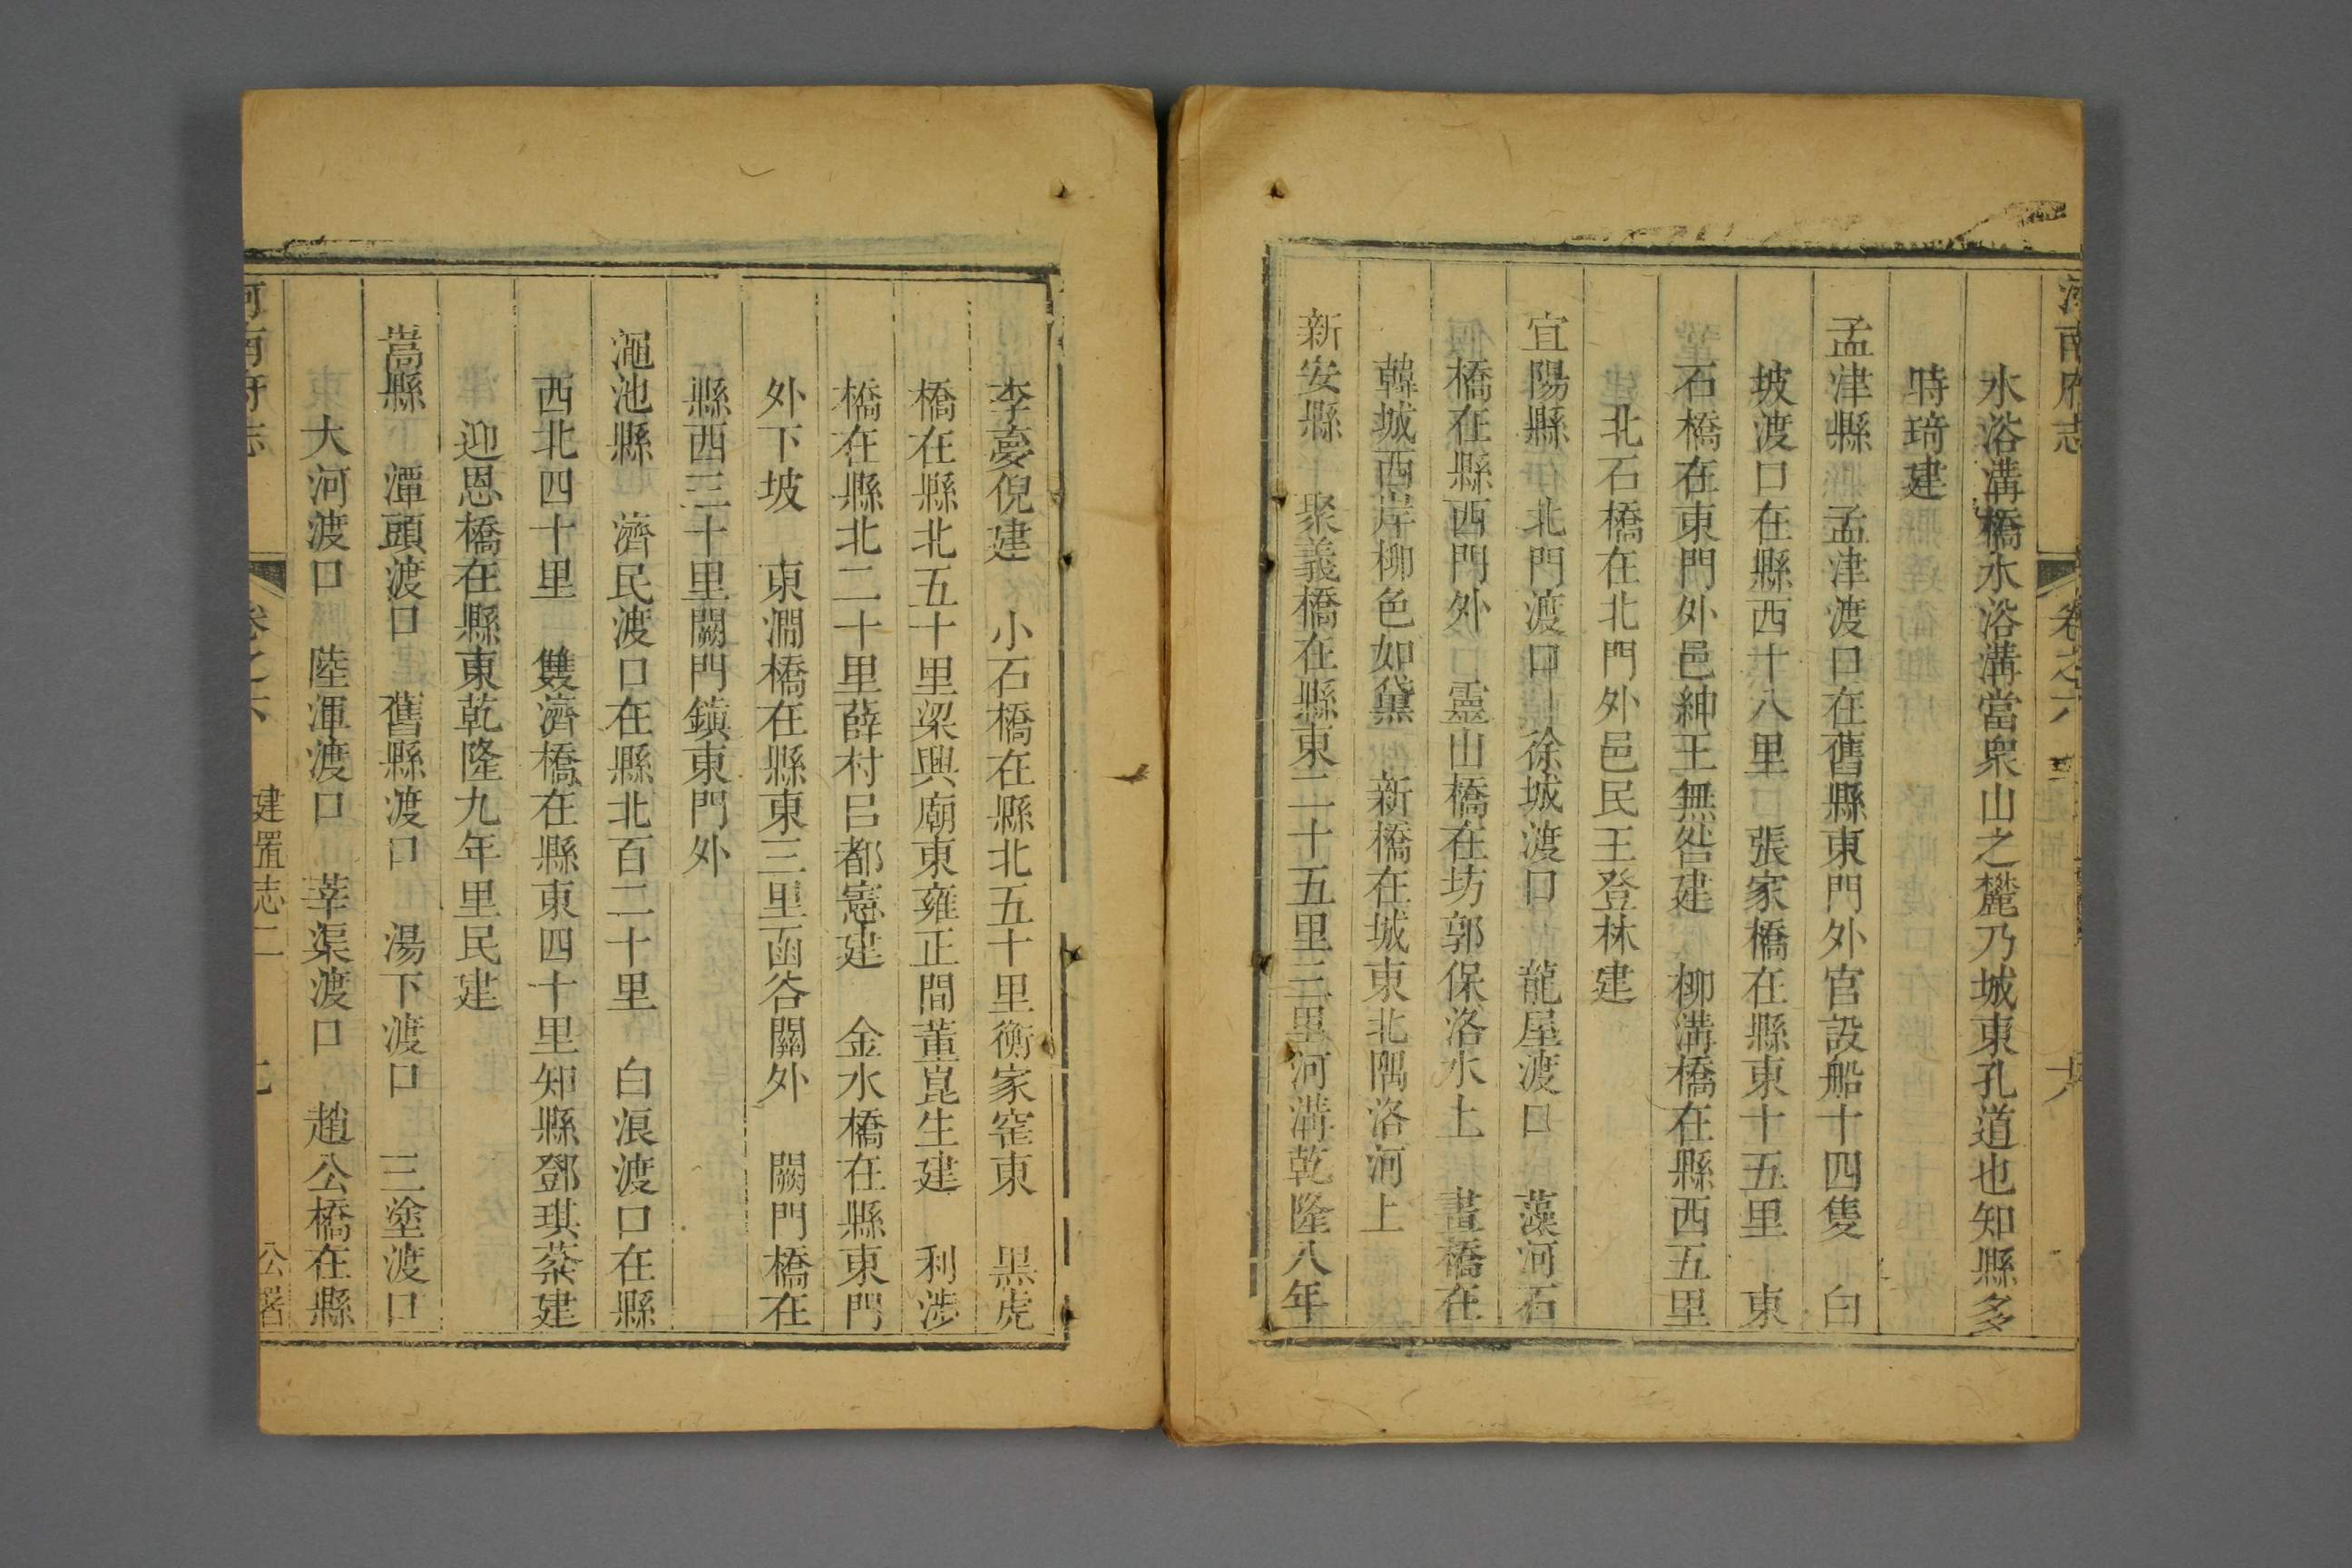 河南府志 卷之六
水浴溝橋水浴溝當衆山之麓乃城東孔道也知縣多
時琦建
孟津縣 孟津渡口在舊縣東門外官設船十四隻 白
坡渡口在縣西十八里 張家橋在縣東十五里 東
石橋在東門外邑紳王無咎建 柳溝橋在縣西五里
北石橋在北門外邑民王登林建
宜陽縣 北門渡口 徐城渡口 龍屋渡口 藻河石
橋在縣西門外 靈山橋在坊郭保洛水上 畫橋在
韓城西岸柳色如黛 新橋在城東北隅洛河上
新安縣 聚義橋在縣東二十五里三里河溝乾隆八年
李夢倪建 小石橋在縣北五十里衡家窑東 黑虎
橋在縣北五十里梁興廟東雍正間董崑生建 利涉
橋在縣北二十里薛村呂都憲建 金水橋在縣東門
外下坡 東澗橋在縣東三里函谷關外 闕門橋在
縣西三十里闕門鎮東門外
澠池縣 濟民渡口在縣北百二十里 白浪渡口在縣
西北四十里 雙濟橋在縣東四十里知縣鄧琪棻建
迎恩橋在縣東乾隆九年里民建
嵩縣 潭頭渡口 舊縣渡口 湯下渡口 三塗渡口
大河渡口 陸渾渡口 莘渠渡口 趙公橋在縣
河南府志 卷之六 建置志二 公署